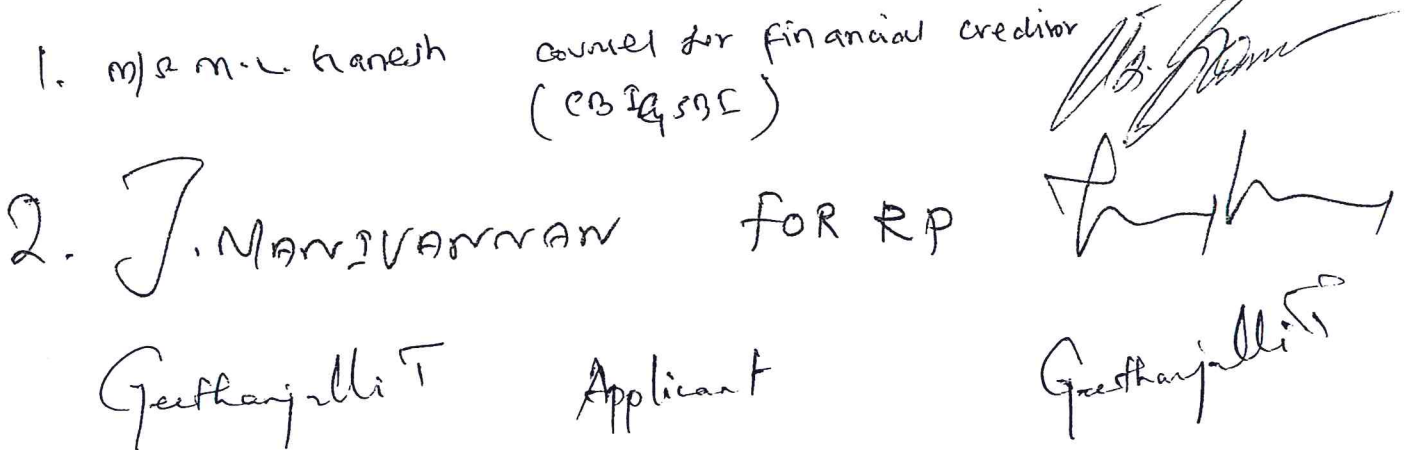 1. M/s M.L. Ganesh Counsel for Financial Creditor
(CBI & SBI)
2. J. MANIVANNAN FOR RP
Geethanjalli T Applicant Geethanjalli T